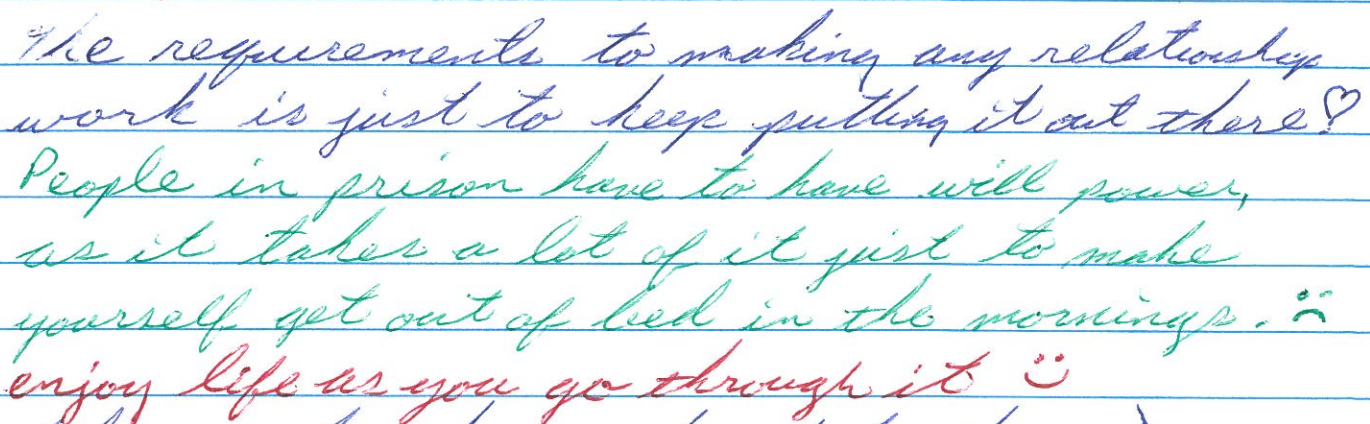 The requirements to making any relationship
work is just to keep putting it out there!
People in prison have to have will power,
as it takes a lot of it just to make
yourself get out of bed in the mornings. :(
enjoy life as you go through it :)